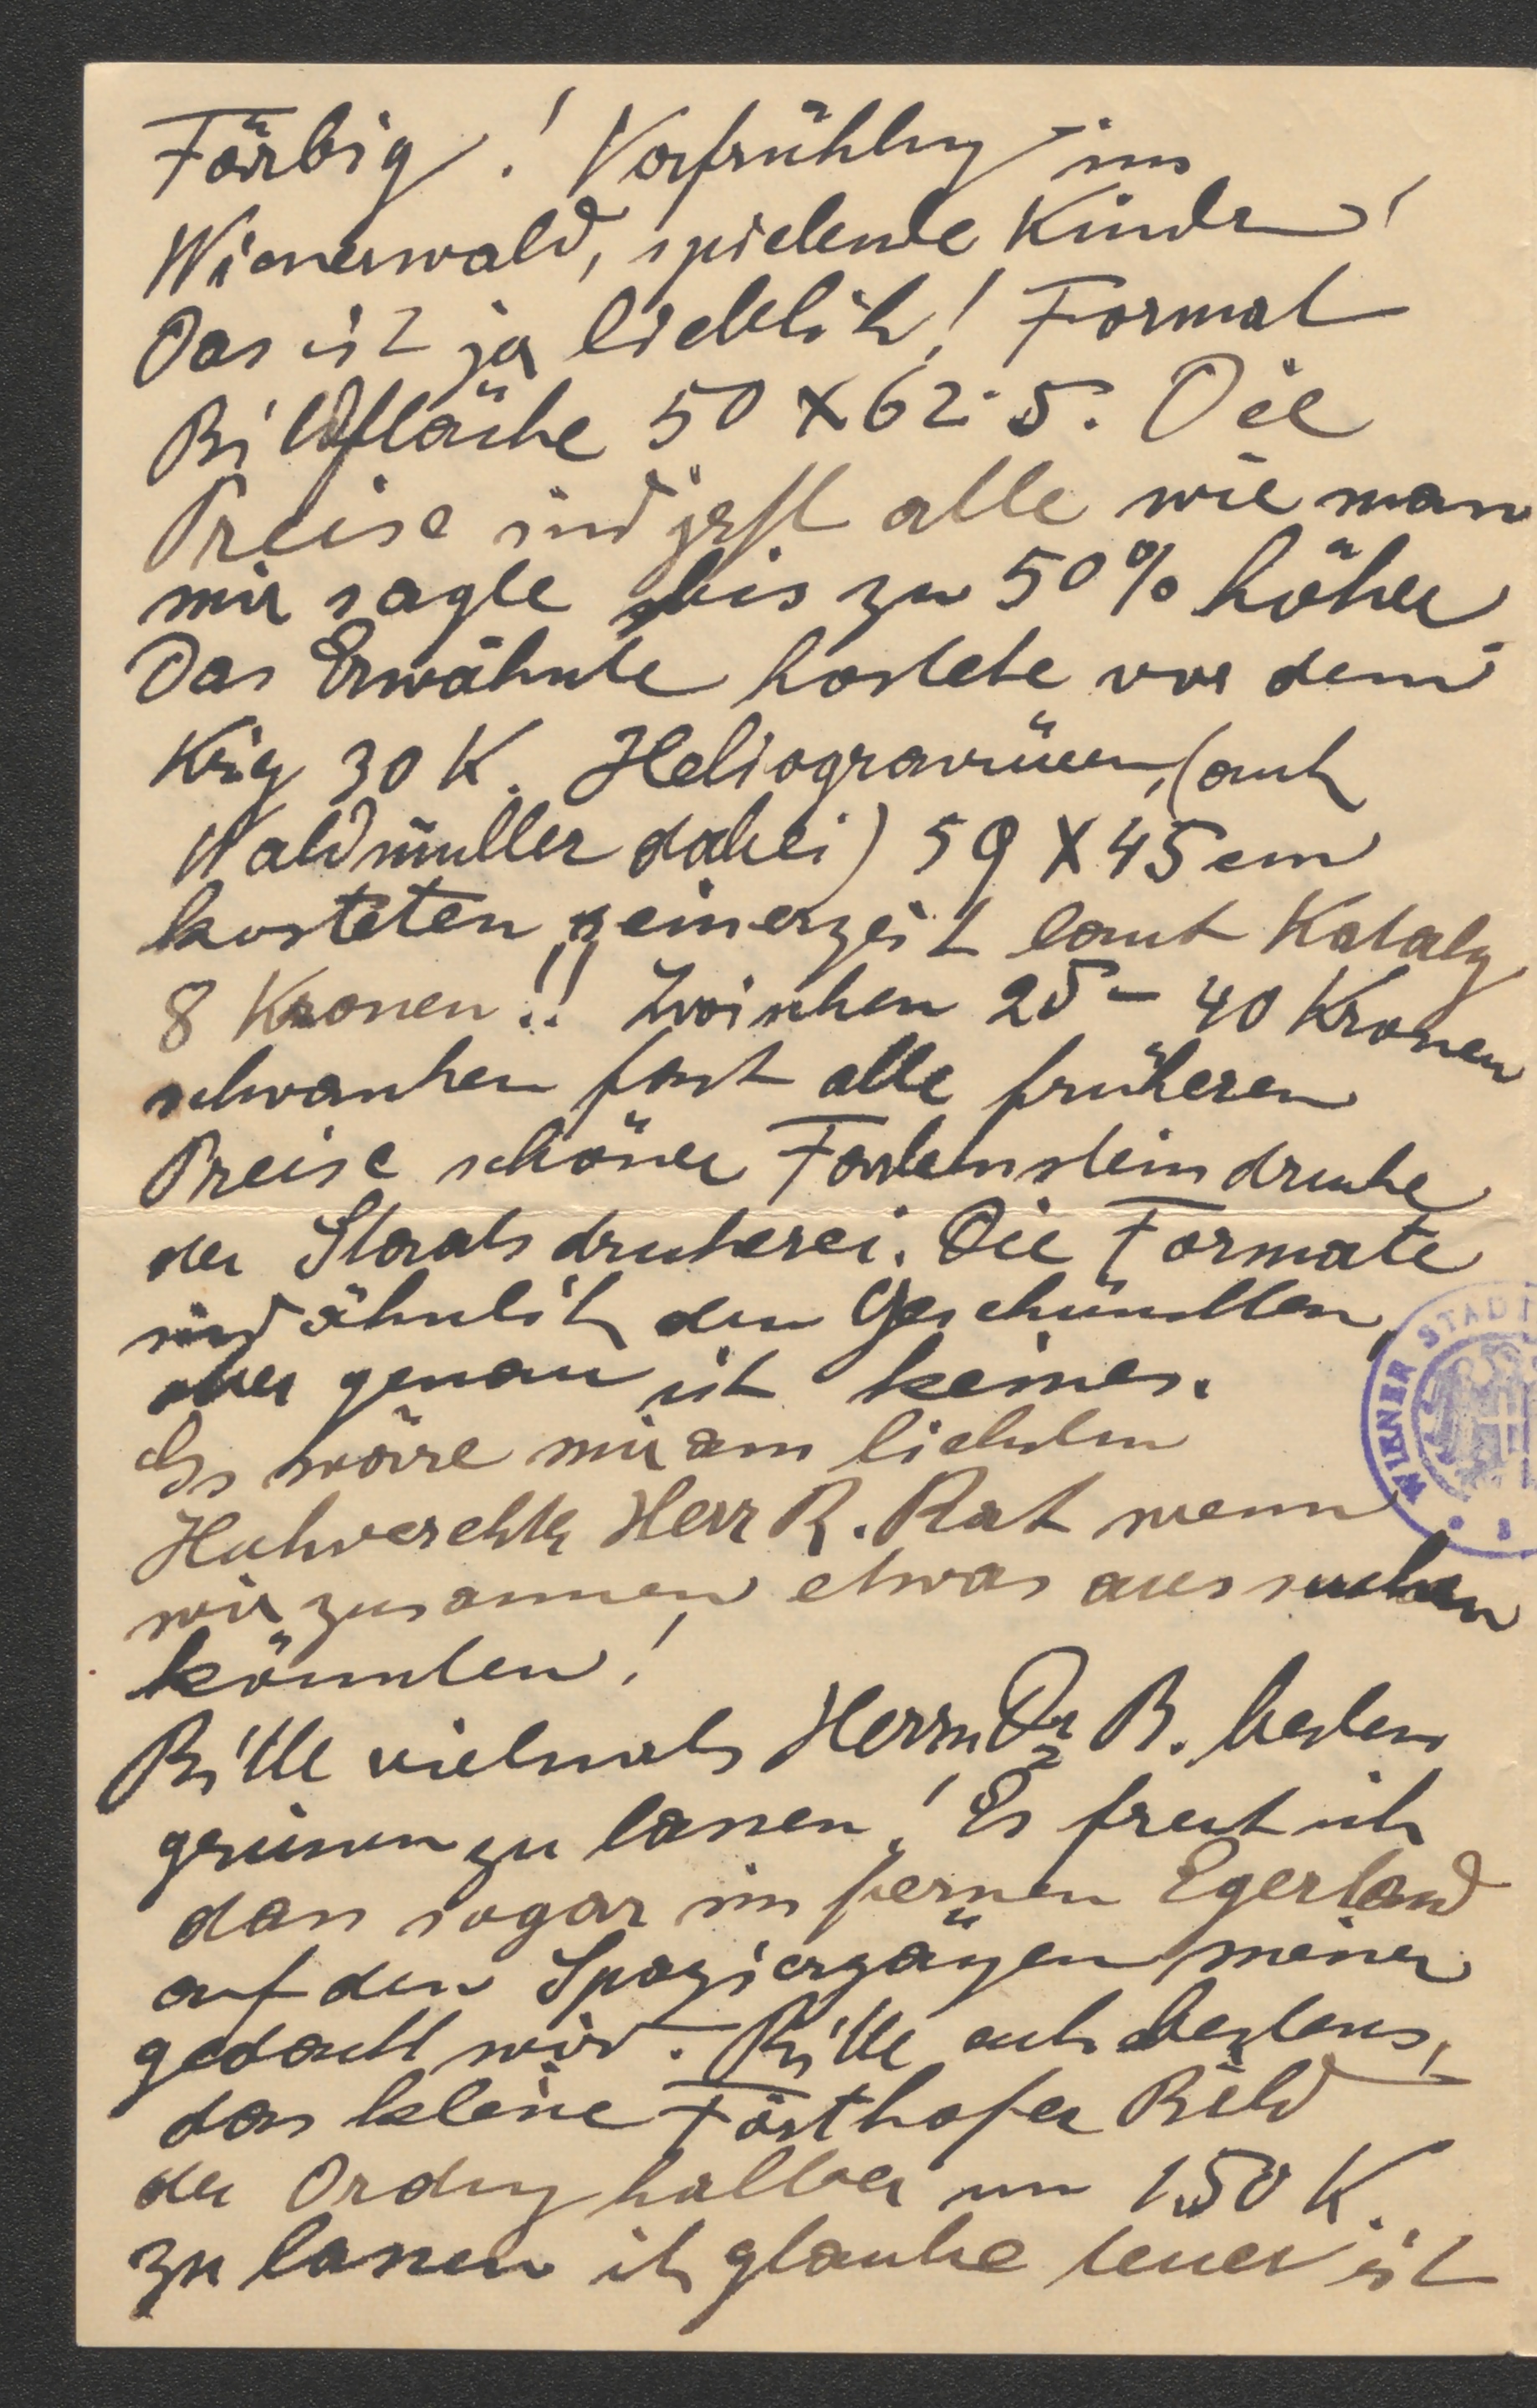 Färbig! Vorfrühling im
Wienerwald, spielende Kinder!
Das ist ja lieblich! Format
Bildfläche 50 x 62·5. Die
Preise sind jetzt alle wie man
mir sagte bis zu 50% höher.
Das Erwähnte kostete vor dem
Krieg 30 K. Heliogravüren, (auch
Waldmüller dabei) 59 X 45 cm
kosteten seinerzeit laut Katalog
8 Kronen!! Zwischen 25 – 40 Kronen
schwanken fast alle früheren
Preise schöner Farbensteindrucke
der Staatsdruckerei. Die Formate
sind ähnlich den Gewünschten,
aber genau ist keines.
Es wäre mir am liebsten
Hochverehrter Herr R. Rat wenn
wir zusammen etwas aussuchen
könnten!
Bitte vielmals Herrn Dr B. bestens
grüssen zu lassen! Es freut mich
dass sogar im fernen Egerland
auf den Spaziergängen meiner
gedacht wird. Bitte auch bestens,
das kleine Bild
der Ordnung halber um 150 K.
zu lassen ich glaube teuer ist
WIENER STADT